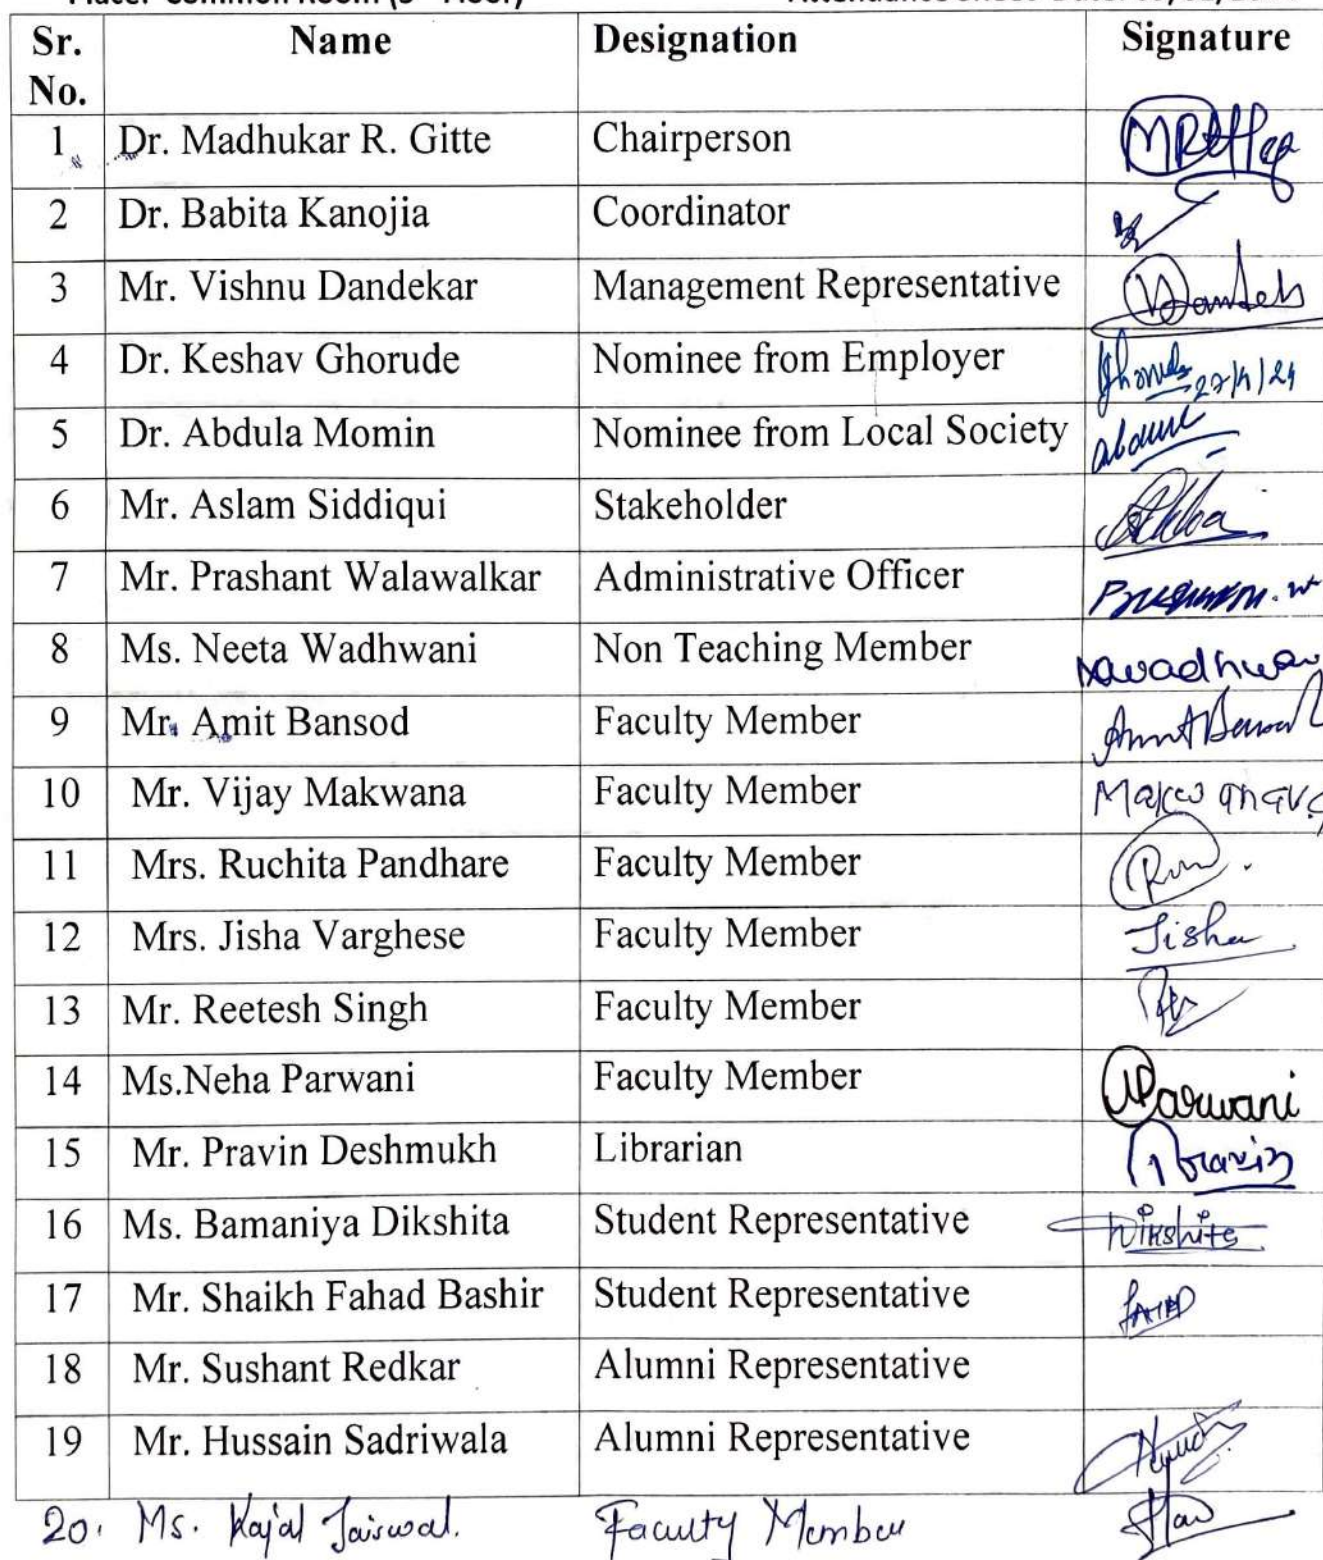 Sr. No. Name Designation Signature
1 Dr. Madhukar R. Gitte Chairperson
2 Dr. Babita Kanojia Coordinator
3 Mr. Vishnu Dandekar Management Representative
4 Dr. Keshav Ghorude Nominee from Employer 27/4/24
5 Dr. Abdula Momin Nominee from Local Society
6 Mr. Aslam Siddiqui Stakeholder
7 Mr. Prashant Walawalkar Administrative Officer
8 Ms. Neeta Wadhwani Non Teaching Member
9 Mr. Amit Bansod Faculty Member
10 Mr. Vijay Makwana Faculty Member
11 Mrs. Ruchita Pandhare Faculty Member
12 Mrs. Jisha Varghese Faculty Member Jisha
13 Mr. Reetesh Singh Faculty Member
14 Ms.Neha Parwani Faculty Member NParwani
15 Mr. Pravin Deshmukh Librarian Pravin
16 Ms. Bamaniya Dikshita Student Representative
17 Mr. Shaikh Fahad Bashir Student Representative
18 Mr. Sushant Redkar Alumni Representative
19 Mr. Hussain Sadriwala Alumni Representative
20. Ms. Kajal Jaiswal. Faculty Member